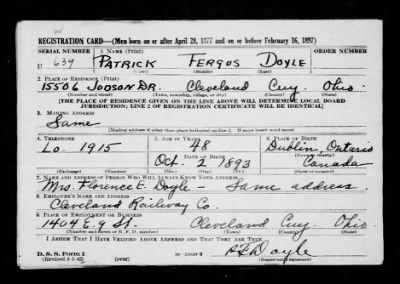 REGISTRATION CARD—(Men born on or after April 28, 1877 and on or before February 16, 1897)
SERIAL NUMBER 1. NAME (Print) ORDER NUMBER
U 639 PATRICK FERGUS DOYLE
(First) (Middle) (Last)
2. PLACE OF RESIDENCE (Print)
15506 JUDSON DR. Cleveland Cuy. Ohio.
(Number and street) (Town, township, village, or city) (County) (State)
[THE PLACE OF RESIDENCE GIVEN ON THE LINE ABOVE WILL DETERMINE LOCAL BOARD
JURISDICTION; LINE 2 OF REGISTRATION CERTIFICATE WILL BE IDENTICAL]
3. MAILING ADDRESS
Same
[Mailing address if other than place indicated on line 2. If same insert word same]
4. TELEPHONE 5. AGE IN YEARS 6. PLACE OF BIRTH
48 Dublin, Ontario
Lo. 1915 DATE OF BIRTH (Town or county)
Oct. 2 1893 Canada
(Exchange) (Number) (Mo.) (Day) (Yr.) (State or country)
7. NAME AND ADDRESS OF PERSON WHO WILL ALWAYS KNOW YOUR ADDRESS
Mrs. Florence E. Doyle - Same address.
8. EMPLOYER'S NAME AND ADDRESS
Cleveland Railway Co.
9. PLACE OF EMPLOYMENT OR BUSINESS
1404 E. 9 St. Cleveland Cuy. Ohio.
(Number and street or R. F. D. number) (Town) (County) (State)
I AFFIRM THAT I HAVE VERIFIED ABOVE ANSWERS AND THAT THEY ARE TRUE.
D. S. S. Form 1 P F Doyle
(Revised 4-1-42) (over) (Registrant's signature)